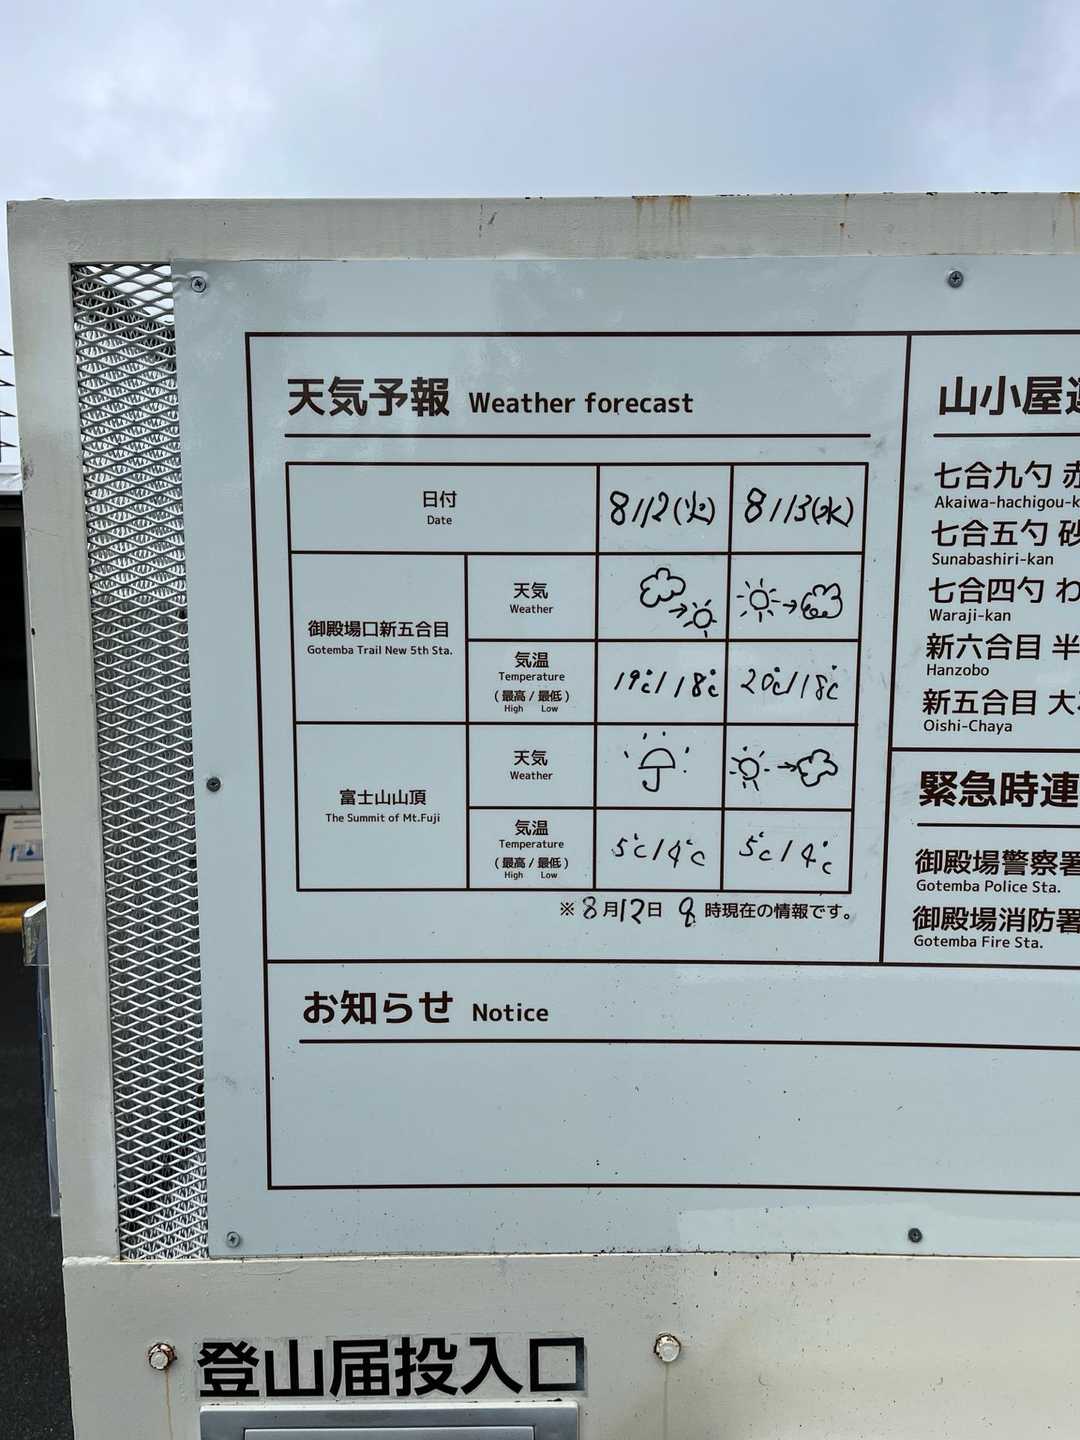 天気予報 Weather forecast
日付
Date
8/12(火)
8/13(水)
御殿場口新五合目
Gotemba Trail New 5th Sta.
天気
Weather
気温
Temperature
(最高/最低)
High Low
19℃/18℃
20℃/18℃
富士山山頂
The Summit of Mt.Fuji
天気
Weather
気温
Temperature
(最高/最低)
High Low
5℃/4℃
5℃/4℃
※8月12日 時現在の情報です。
お知らせ Notice
山小屋
七合九勺 赤
Akaiwa-hachigou-k
七合五勺 砂
Sunabashiri-kan
七合四勺 わ
Waraji-kan
新六合目 半
Hanzobo
新五合目 大
Oishi-Chaya
緊急時連
御殿場警察署
Gotemba Police Sta.
御殿場消防署
Gotemba Fire Sta.
登山届投入口